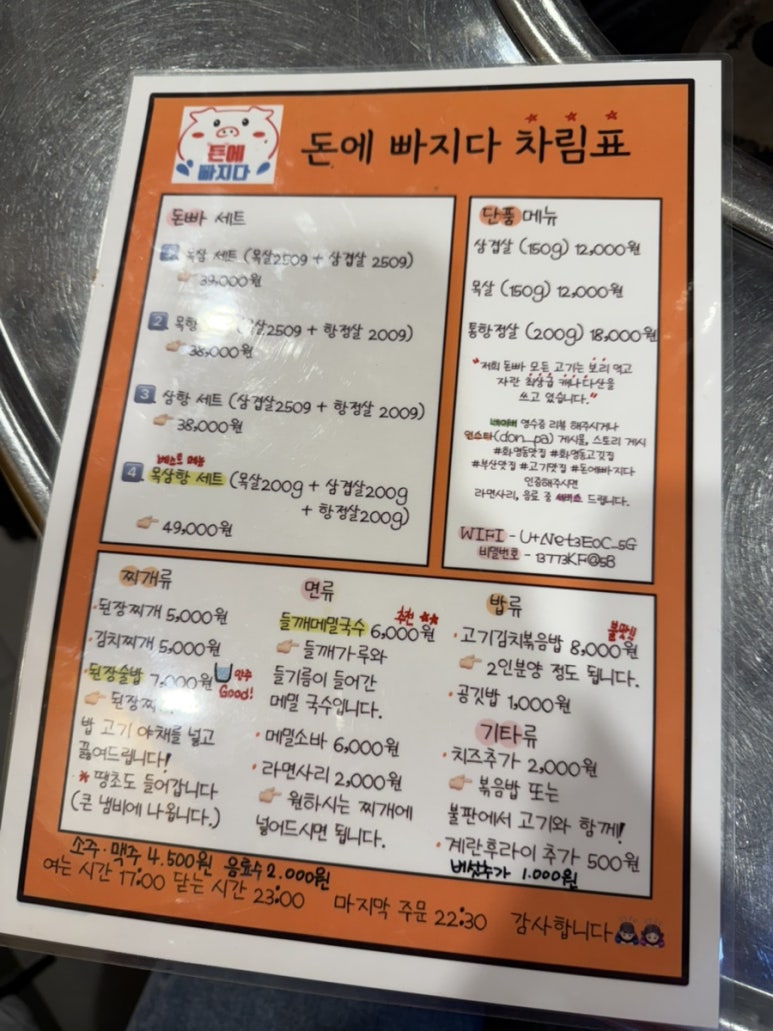 돈에
빠지다
돈에 빠지다 차림표
돈빠 세트
목삼 세트 (목살250g + 삼겹살 250g)
39,000원
2 목항 (목살250g + 항정살 200g)
38,000원
3 삼항 세트 (삼겹살250g + 항정살 200g)
38,000원
베스트 메뉴
4 목삼항 세트 (목살200g + 삼겹살200g
+ 항정살200g)
49,000원
단품 메뉴
삼겹살 (150g) 12,000원
목살 (150g) 12,000원
통항정살 (200g) 18,000원
"저희 돈빠 모든 고기는 보리 먹고
자란 최상급 캐나다산을
쓰고 있습니다."
네이버 영수증 리뷰 해주시거나
인스타(don_pa) 게시물, 스토리 게시
#화명동맛집 #화명동고깃집
#부산맛집 #고기맛집 #돈에빠지다
인증해주시면
라면사리, 음료 중 서비스 드립니다.
WIFI - U+Net3E0C_5G
비밀번호 - B773KF@58
찌개류
·된장찌개 5,000원
·김치찌개 5,000원
·된장술밥 7,000원 안주
Good!
된장찌
밥 고기 야채를 넣고
끓여드립니다!
* 땡초도 들어갑니다
(큰 냄비에 나옵니다.)
면류
추천
들깨메밀국수 6,000원
들깨가루와
들기름이 들어간
메밀 국수입니다.
·메밀소바 6,000원
·라면사리 2,000원
원하시는 찌개에
넣어드시면 됩니다.
밥류
불맛!!
·고기김치볶음밥 8,000원
2인분양 정도 됩니다.
·공깃밥 1,000원
기타류
·치즈추가 2,000원
볶음밥 또는
불판에서 고기와 함께!
·계란후라이 추가 500원
버섯추가 1.000원
소주·맥주 4.500원 음료수 2.000원
여는 시간 17:00 닫는 시간 23:00 마지막 주문 22:30 감사합니다